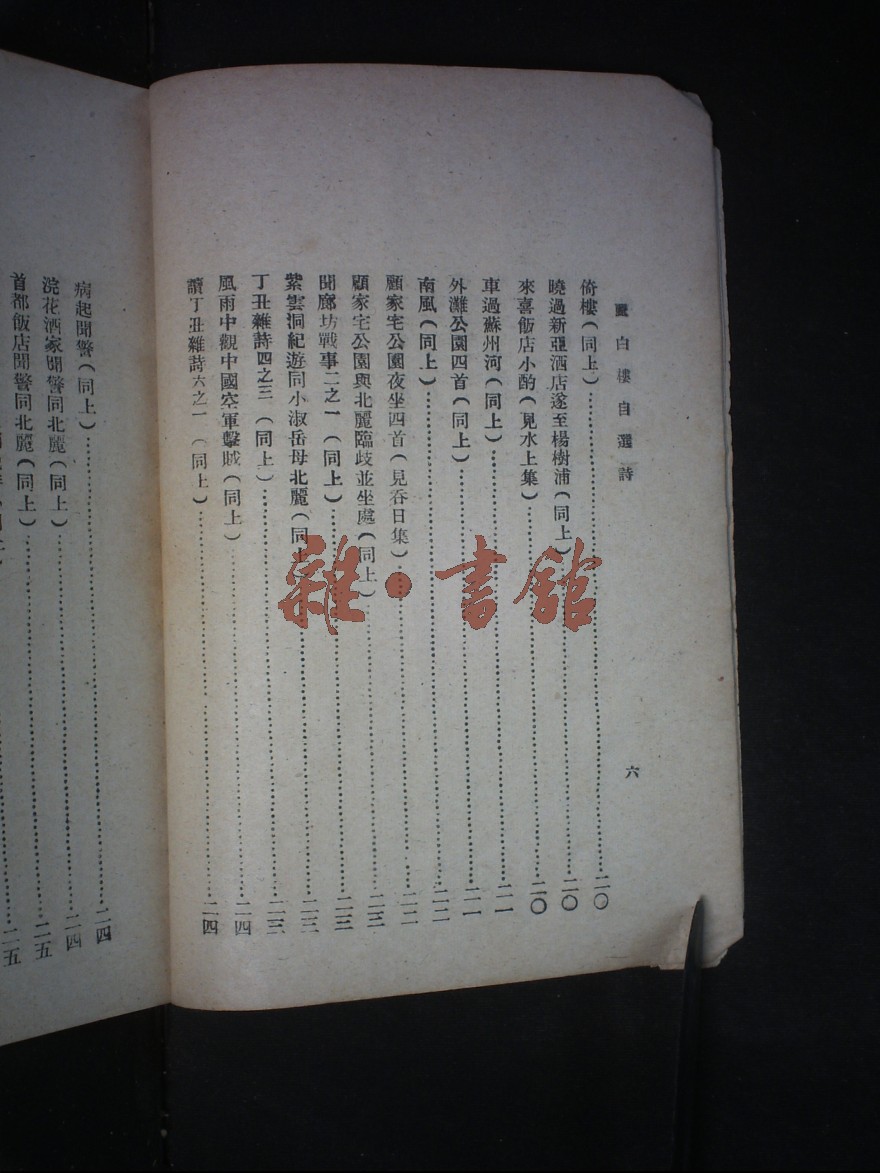 白樓自選詩
六
倚樓(同上)…………二〇
曉過新亞酒店遂至楊樹浦(同上)…………二〇
來喜飯店小酌(見水上集)…………二〇
車過蘇州河(同上)…………二一
外灘公園四首(同上)…………二一
南風(同上)…………二二
顧家宅公園夜坐四首(見吞日集)…………二二
顧家宅公園與北麗臨歧並坐處(同上)…………二三
聞廊坊戰事二之一(同上)…………二三
紫雲洞紀遊同小淑岳母北麗(同上)…………二三
丁丑雜詩四之三(同上)…………二三
風雨中觀中國空軍擊賊(同上)…………二四
讀丁丑雜詩六之一(同上)…………二四
病起聞警(同上)…………二四
浣花酒家聞警同北麗(同上)…………二四
首都飯店聞警同北麗(同上)…………二五
二五
雜·書館